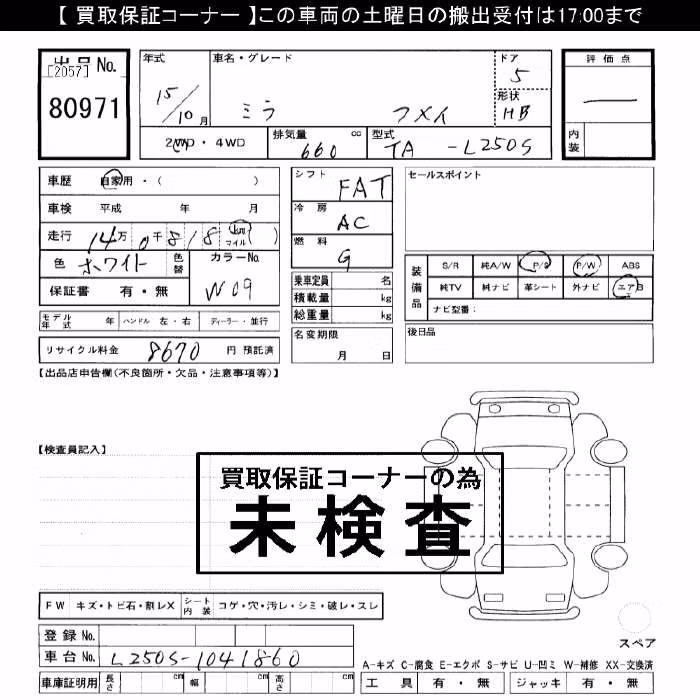 【 買取保証コーナー 】この車両の土曜日の搬出受付は17:00まで
出品No. [2057] 80971
年式 15/10月
車名・グレード ミラ
ドア 5
形状 HB
評価点 —
内装
2WD・4WD
排気量 660 cc
型式 TA -L250S
車歴 自家用・( )
車検 平成 年 月
走行 14万0千818 km マイル ( )
色 ホワイト 色替
カラーNo. W09
保証書 有・無
シフト FAT
冷房 AC
燃料 G
乗車定員 名
積載量 kg
総重量 kg
セールスポイント
装備品 S/R 純A/W P/S P/W ABS
純TV 純ナビ 革シート 外ナビ エアB
ナビ型番:
モデル年式 年 ハンドル 左・右 ディーラー・並行
リサイクル料金 8670 円 預託済
名変期限 月 日
後日品
【出品店申告欄(不良箇所・欠品・注意事項等)】
【検査員記入】
買取保証コーナーの為
未検査
FW キズ・トビ石・割レX シート内装 コゲ・穴・汚レ・シミ・破レ・スレ
スペア
登録No.
車台No. L250S-1041860
A-キズ C-腐食 E-エクボ S-サビ U-凹ミ W-補修 XX-交換済
車庫証明用 長さ cm 幅 cm 高さ cm
工具 有・無 ジャッキ 有・無